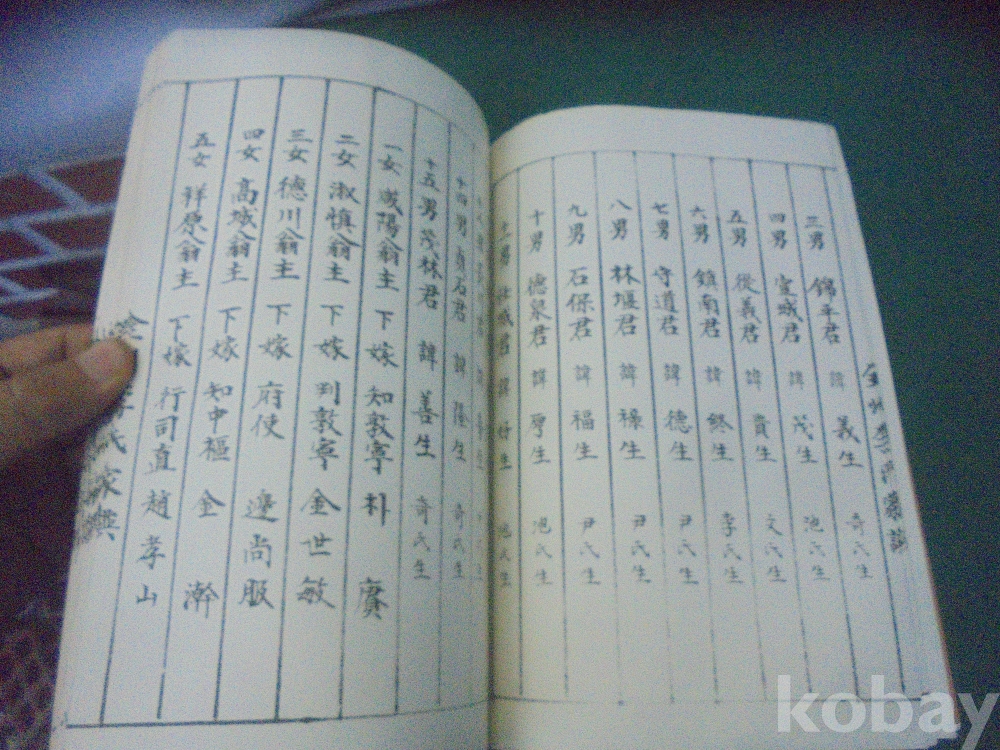 三男 錦平君 諱 義生 奇氏生
四男 宣城君 諱 茂生 池氏生
五男 從義君 諱 貴生 文氏生
六男 鎮南君 諱 終生 李氏生
七男 守道君 諱 德生 尹氏生
八男 林堰君 諱 祿生 尹氏生
九男 石保君 諱 福生 尹氏生
十男 德泉君 諱 厚生 池氏生
男 城君 諱 好生 池氏生
十四男 石君 諱 隆生 奇氏生
十五男 茂林君 諱 善生 奇氏生
一女 咸陽翁主 下嫁 知敦寧 朴 賡
二女 淑慎翁主 下嫁 判敦寧 金世敏
三女 德川翁主 下嫁 府使 邊尚服
四女 高城翁主 下嫁 知中樞 金 澣
五女 祥原翁主 下嫁 行司直 趙孝山
李氏家
kobay